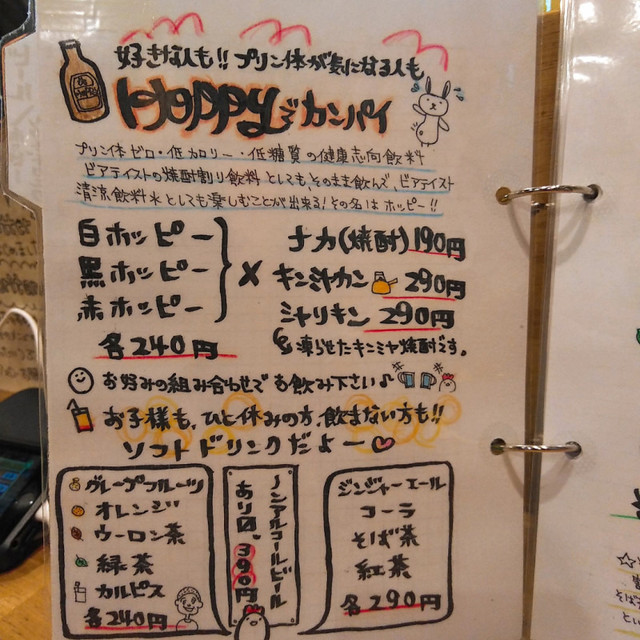 好きな人も!! プリン体が気になる人も
HOPPYでカンパイ
プリン体ゼロ・低カロリー・低糖質の健康志向飲料
ビアテイストの焼酎割り飲料としても、そのまま飲んで、ビアテイスト
清涼飲料水としても楽しむことが出来る!その名はホッピー!!
白ホッピー
黒ホッピー
赤ホッピー
各240円
×
ナカ(焼酎)190円
キンミヤカン 290円
シャリキン 290円
凍らせたキンミヤ焼酎です。
お好みの組み合わせでお飲み下さい♪
お子様も、ひと休みの方、飲まない方も!!
ソフトドリンクだよー♡
グレープフルーツ
オレンジ
ウーロン茶
緑茶
カルピス
各240円
ノンアルコールビール
あり〼、390円
ジンジャーエール
コーラ
そば茶
紅茶
各290円